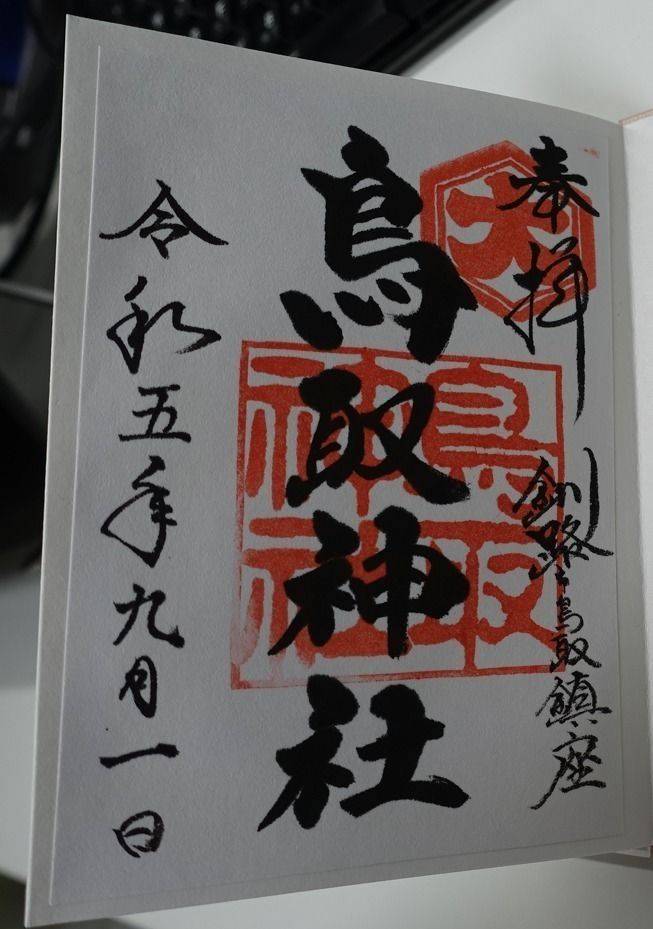 奉拝
釧路市鳥取鎮座
鳥取神社
鳥取神社
大
令和五年九月一日